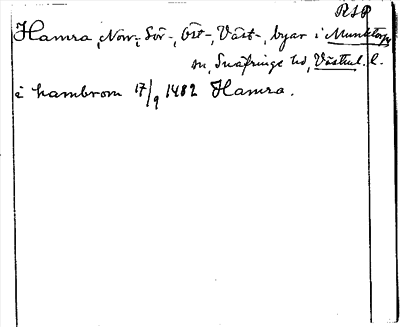 RSP
Hamra, Nor-, Sör-, Öst-, Väst-, byar i Munktorps
sn, Snäfringe hd, Västml. l.
i hambrom 17/9 1482 Hamra.